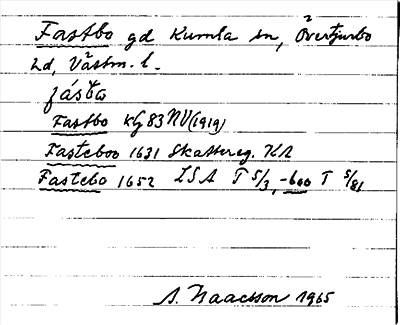 Fastbo gd Kumla sn, Övertjurbo
hd, Västm. l.
fásta
Fastbo KG 83 NV (1919)
Fasteboo 1631 Skattereg. KA
Fastebo 1652 LSA T 5/3, -boo T 5/81
A. Isaacsson 1965